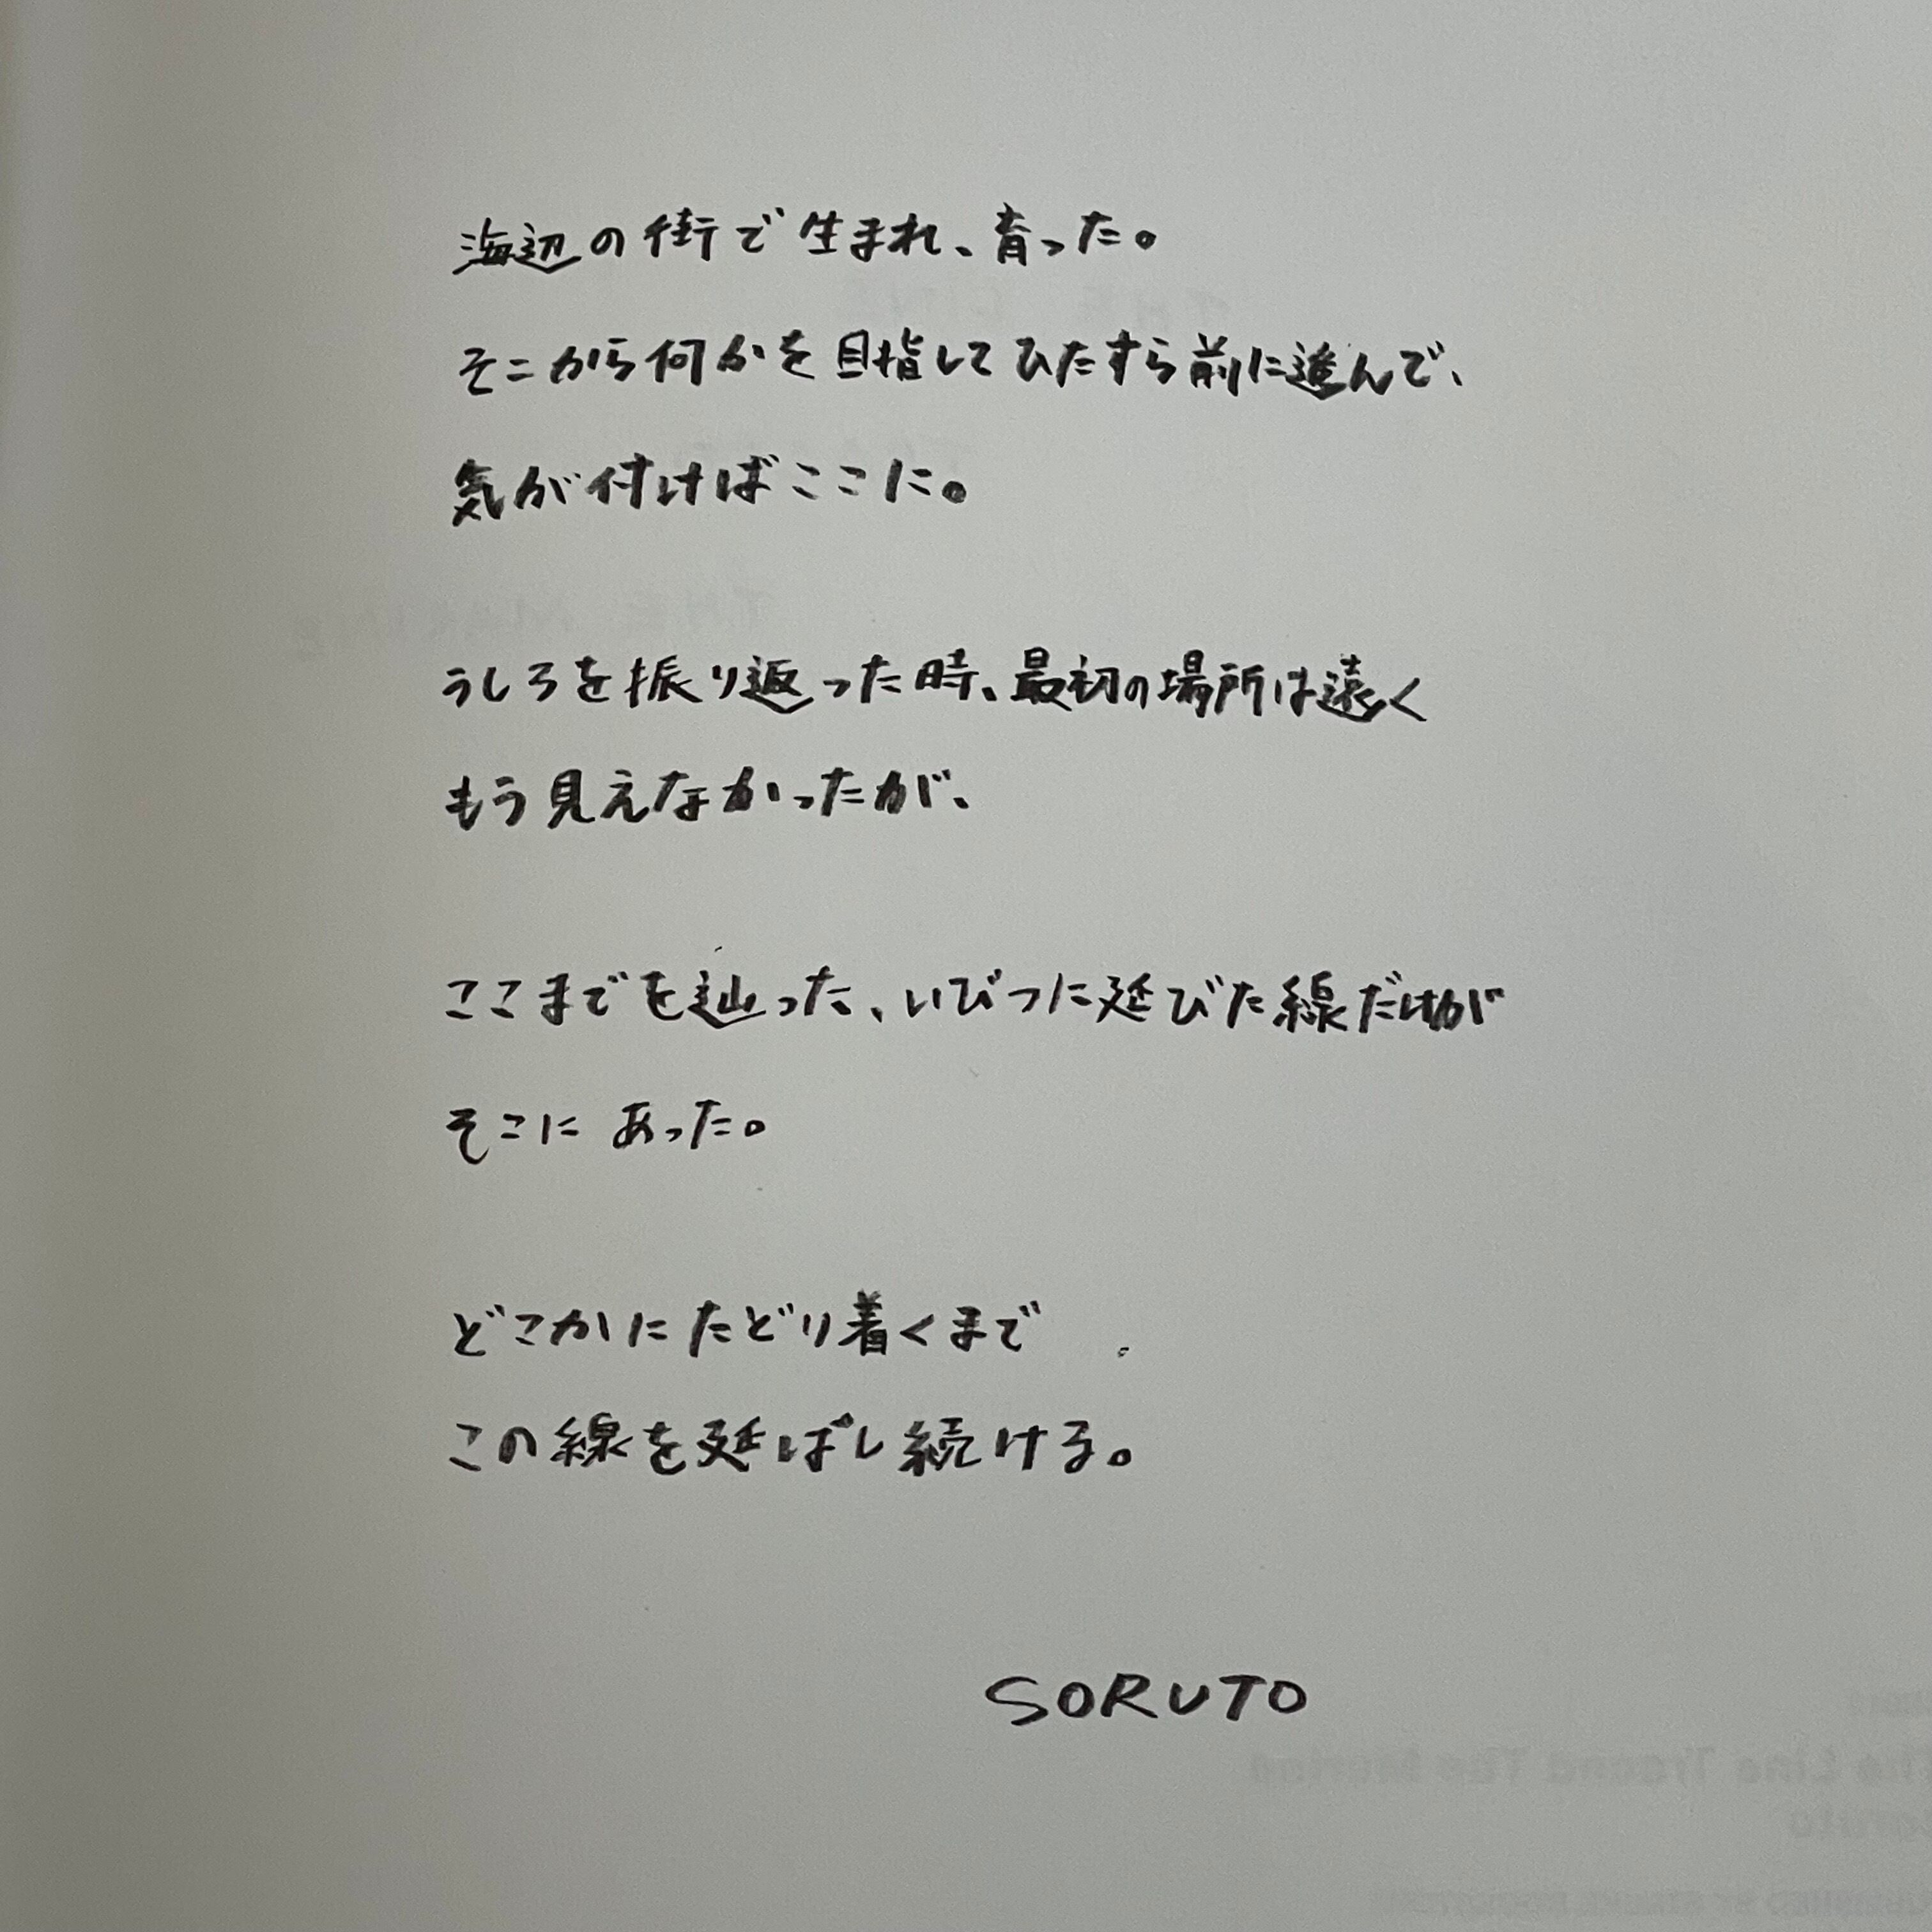 海辺の街で生まれ、育った。
そこから何かを目指してひたすら前に進んで、
気が付けばここに。
うしろを振り返った時、最初の場所は遠く
もう見えなかったが、
ここまでを辿った、いびつに延びた線だけが
そこにあった。
どこかにたどり着くまで
この線を延ばし続ける。
SORUTO